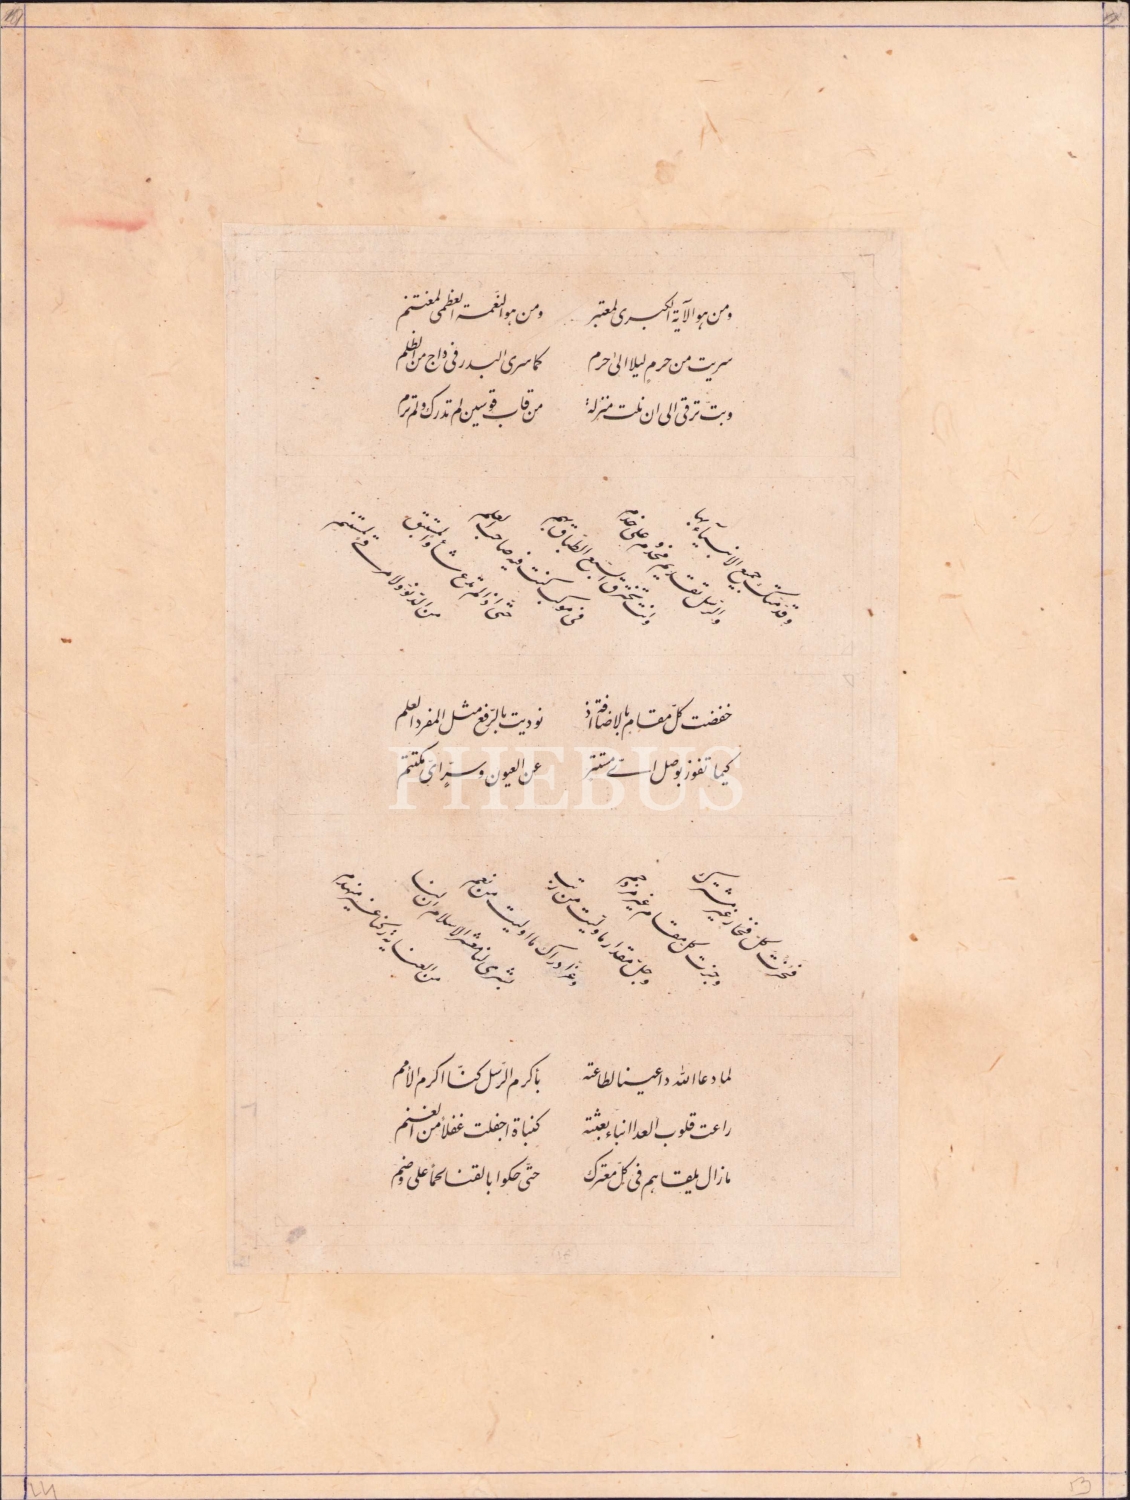 ومن هو الآية الكبرى لمعتبر ومن هو النعمة العظمى لمغتنم
سريت من حرمٍ ليلا الى حرم كما سرى البدر فى داج من الظلم
وبتّ ترقى الى ان نلت منزلة من قاب قوسين لم تدرك ولم ترم
وقدّمتك جميع الانبياء بها
والرسل تقديم مخدوم على خدم
وانت تخترق السبع الطباق بهم
فى موكب كنت فيه صاحب العلم
حتّى اذا لم تدع شأوا لمستبق
من الدنوّ ولا مرقى لمستنم
خفضت كلّ مقام بالاضافة اذ نوديت بالرّفع مثل المفرد العلم
كيما تفوز بوصل اىّ مستتر عن العيون وسرٍّ اىّ مكتتم
PHEBUS
فحزت كلّ فخار غير مشترك
وجزت كلّ مقام غير مزدحم
وجلّ مقدار ما ولّيت من رتب
وعزّ ادراك ما اوليت من نعم
بشرى لنا معشر الاسلام ان لنا
من العناية ركنا غير منهدم
لما دعا الله داعينا لطاعته بأكرم الرّسل كنّا اكرم الأمم
راعت قلوب العدا انباء بعثته كنبأة اجفلت غفلاً من الغنم
مازال يلقاهم فى كلّ معترك حتّى حكوا بالقنا لحماً على وضم